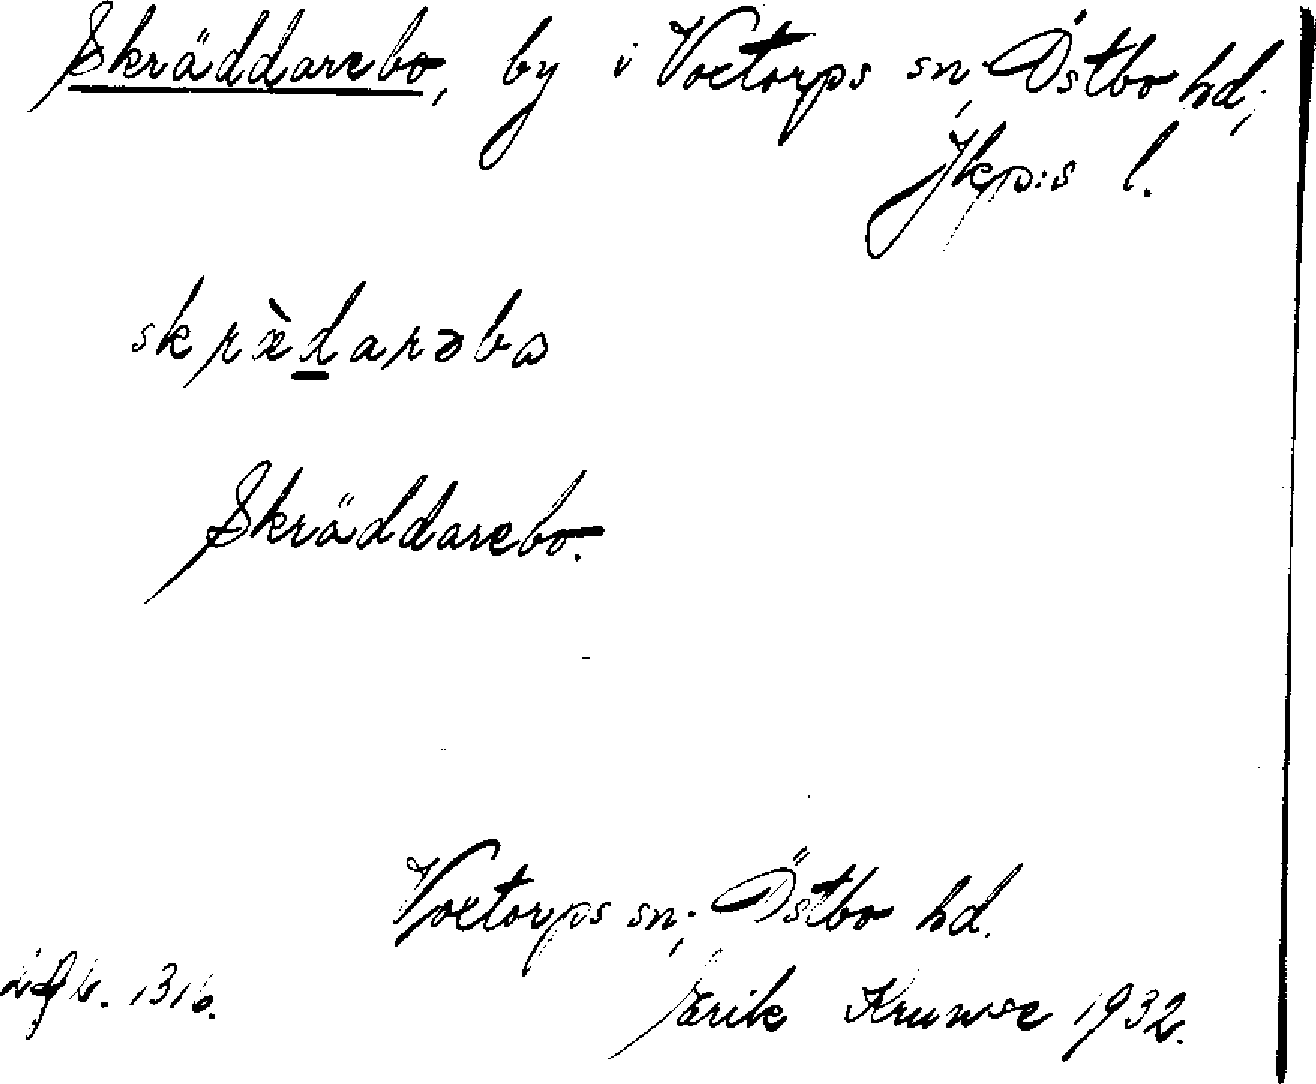 Skräddarebo, by i Voxtorps sn, Östbo hd,
Jkp:s l.
skræ̀d̲arəbo
Skräddarebo.
Voxtorps sn, Östbo hd.
Erik 1932.